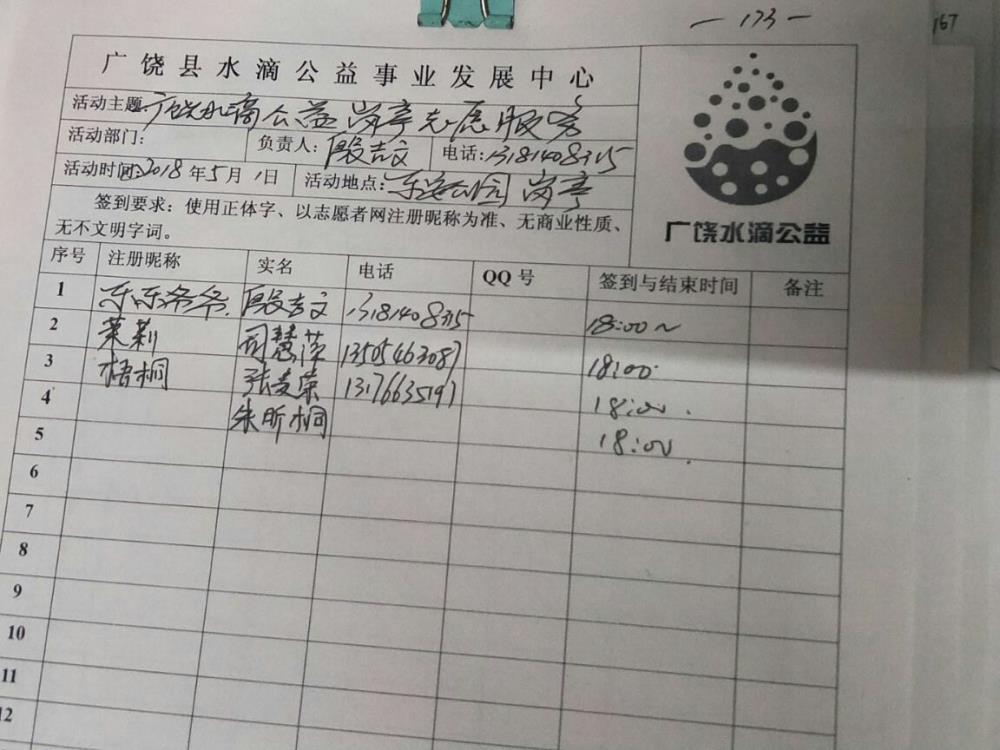 — 173 —
167
广饶县水滴公益事业发展中心
活动主题:广饶水滴公益岗亭志愿服务
活动部门: 负责人:殷吉文 电话:13181408315
活动时间:2018年5月1日 活动地点:乐安公园 岗亭
签到要求:使用正体字、以志愿者网注册昵称为准、无商业性质、
无不文明字词。
广饶水滴公益
序号 注册昵称 实名 电话 QQ号 签到与结束时间 备注
1 乐乐爷爷. 殷吉文 13181408315 18:00~
2 茉莉 司慧萍 13505463087 18:00.
3 梧桐 张麦荣 13176635197 18:00.
4 朱昕桐 18:00.
5
6
7
8
9
10
11
12